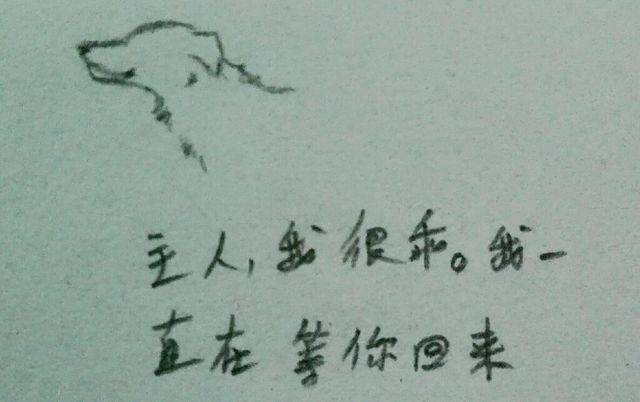 主人,我很乖。我一
直在等你回来